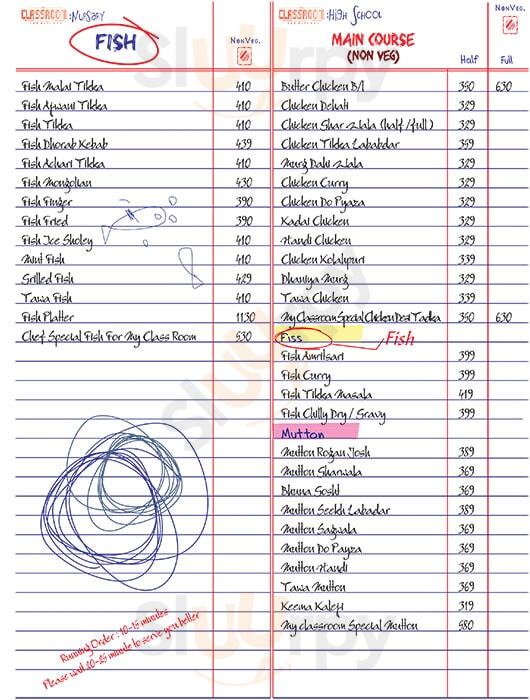 CLASSROOM : NURSARY
FISH
NONVEG.
Fish Malai Tikka 410
Fish Ajwani Tikka 410
Fish Tikka 410
Fish Dhorab Kebab 439
Fish Achari Tikka 410
Fish Mongolian 430
Fish Finger 390
Fish Fried 390
Fish Ice Sholey 410
Mint Fish 410
Grilled Fish 429
Tawa Fish 410
Fish Platter 1130
Chef Special Fish For My Class Room 530
Running Order : 10-15 minutes
Please wait 20-25 minute to serve you better
CLASSROOM : HIGH SCHOOL
MAIN COURSE
(NON VEG)
NONVEG.
Half Full
Butter Chicken B/L 350 630
Chicken Dehati 329
Chicken Shar Wala (half/full) 329
Chicken Tikka Lababdar 359
Murg Dahi Wala 329
Chicken Curry 329
Chicken Do Pyaza 329
Kadai Chicken 329
Handi Chicken 329
Chicken Kolahpuri 339
Dhaniya Murg 329
Tawa Chicken 339
My Classroom Special Chicken Desi Tadka 350 630
Fiss Fish
Fish Amritsari 399
Fish Curry 399
Fish Tikka Masala 419
Fish Chilly Dry / Gravy 399
Mutton
Mutton Rogan Josh 389
Mutton Sharwala 369
Bhuna Gosht 369
Mutton Seekh Labadar 389
Mutton Sagwala 369
Mutton Do Payza 369
Mutton Handi 369
Tawa Mutton 369
Keema Kaleji 319
My classroom Special Mutton 580
Sluurpy
Sluurpy
Sluurpy